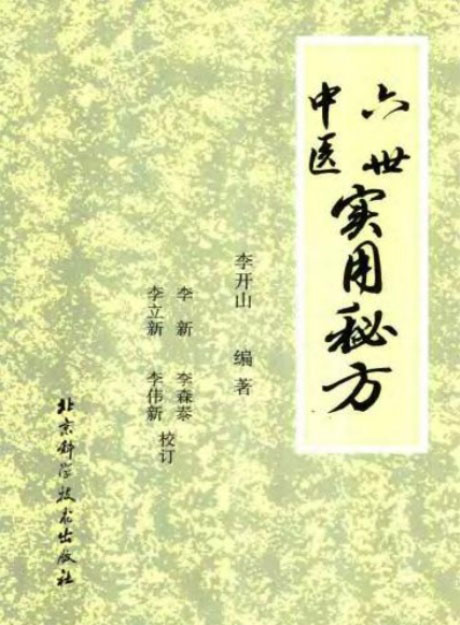 六世
中医
实用秘方
李开山 编著
李新 李森泰
李立新 李伟新
校订
北京科学技术出版社